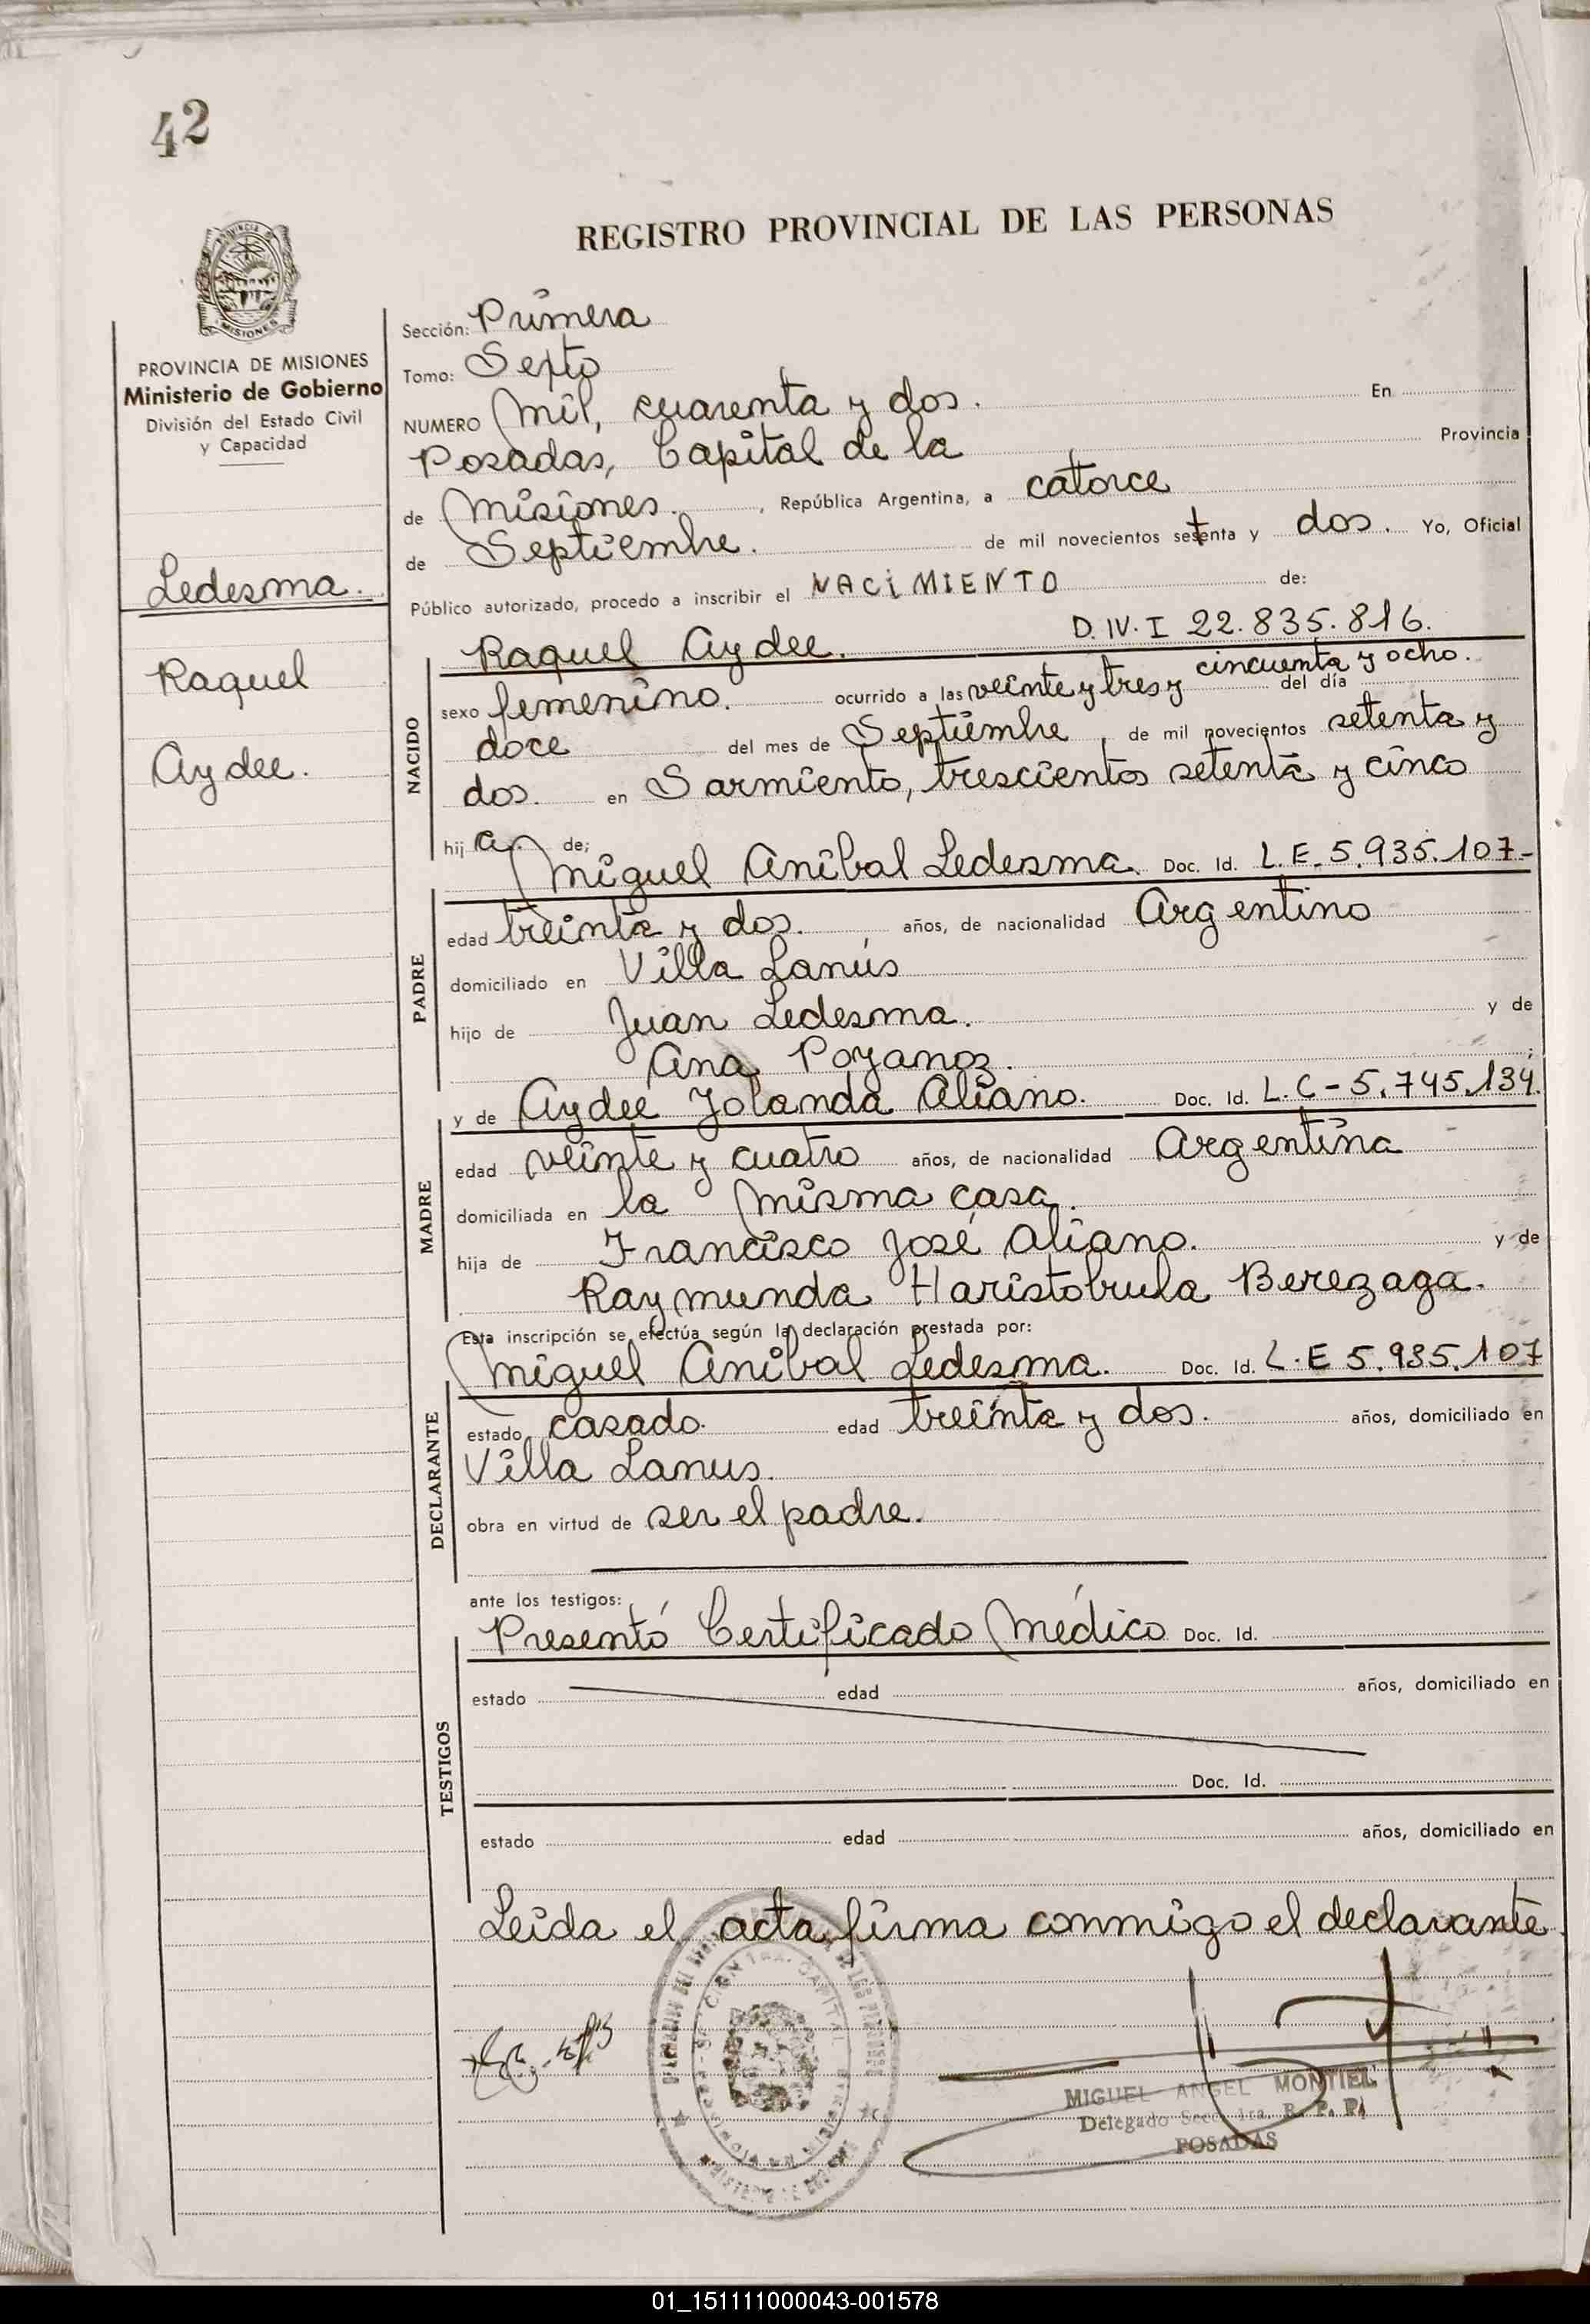 42
REGISTRO PROVINCIAL DE LAS PERSONAS
MISIONES
PROVINCIA DE MISIONES
Ministerio de Gobierno
División del Estado Civil
y Capacidad
Ledesma.
Raquel
Aydee.
Sección: Primera
Tomo: Sexto
NUMERO Mil, cuarenta y dos. En
Posadas, Capital de la Provincia
de Misiones. , República Argentina, a catorce
de Septiembre. de mil novecientos setenta y dos. Yo, Oficial
Público autorizado, procedo a inscribir el NACIMIENTO de:
Raquel Aydee. D. IV. I 22.835.816.
NACIDO
sexo femenino. ocurrido a las veinte y tres y cincuenta y ocho. del día
doce del mes de Septiembre , de mil novecientos setenta y
dos. en Sarmiento, trescientos setenta y cinco
hij a. de;
Miguel Aníbal Ledesma. Doc. Id. L.E. 5.935.107-
PADRE
edad treinta y dos. años, de nacionalidad Argentino
domiciliado en Villa Lanús
hijo de Juan Ledesma. y de
Ana Poyanoz.
y de Aydee Yolanda Aliano. Doc. Id. L.C - 5.745.134.
MADRE
edad veinte y cuatro años, de nacionalidad Argentina
domiciliada en la misma casa.
hija de Francisco José Aliano. y de
Raymunda Haristobula Berezaga.
Esta inscripción se efectúa según la declaración prestada por:
Miguel Aníbal Ledesma. Doc. Id. L.E 5.935.107
DECLARANTE
estado casado. edad treinta y dos. años, domiciliado en
Villa Lanus.
obra en virtud de ser el padre.
ante los testigos:
Presentó Certificado Médico Doc. Id.
TESTIGOS
estado edad años, domiciliado en
Doc. Id.
estado edad años, domiciliado en
Leida el acta firma conmigo el declarante.
MIGUEL ANGEL MONTIEL
Delegado Secc. 1ra. R. P. P.
POSADAS
01_151111000043-001578